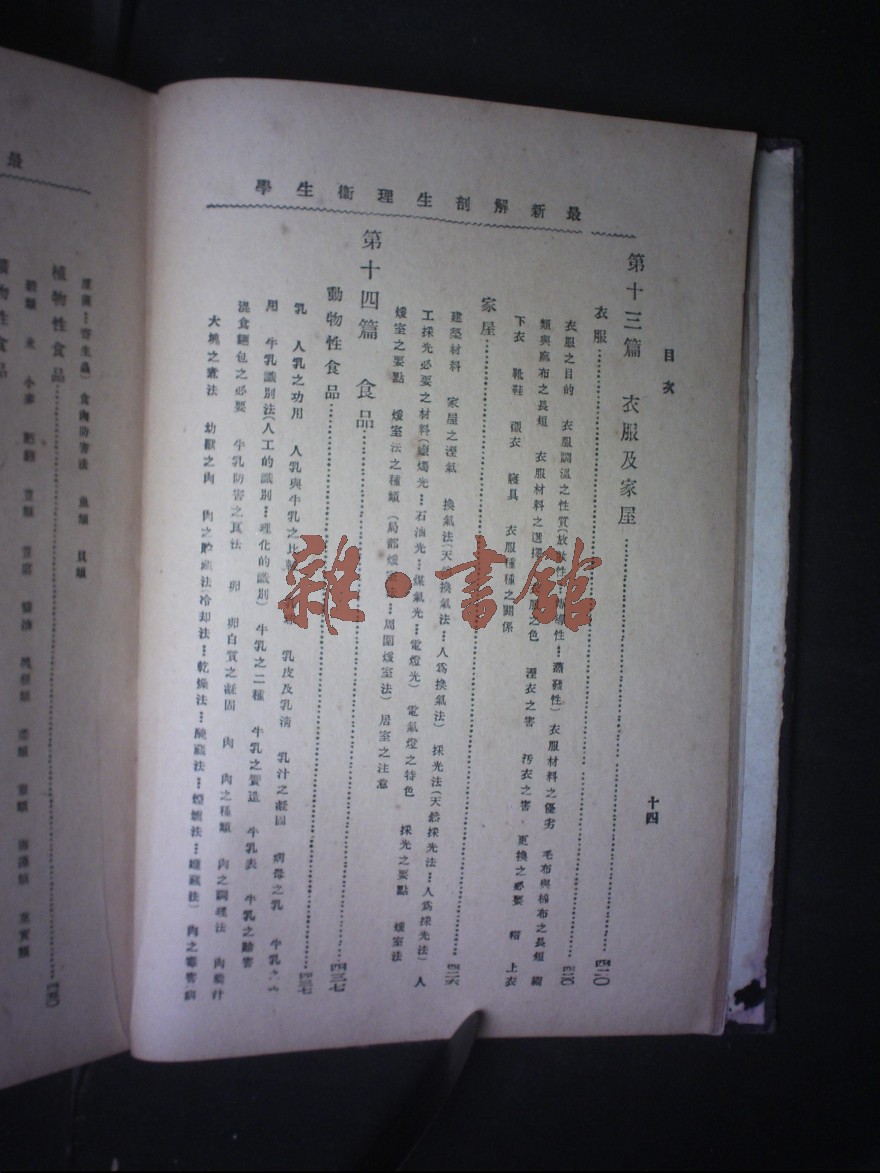 最新解剖生理衛生學
目次
十四
第十三篇 衣服及家屋
衣服 四二〇
衣服之目的 衣服調溫之性質(放散性…傳導性…蒸發性) 衣服材料之優劣 毛布與棉布之長短
類與麻布之長短 衣服材料之選擇 衣服之色 溼衣之害 汚衣之害 更換之必要 帽 上衣
下衣 靴鞋 襯衣 寢具 衣服種種之關係
家屋 四二六
建築材料 家屋之溼氣 換氣法(天然換氣法…人爲換氣法) 採光法(天然採光法…人爲採光法) 人
工採光必要之材料(蠟燭光…石油光…煤氣光…電燈光) 電氣燈之特色 採光之要點 煖室法
煖室之要點 煖室法之種類(局部煖室法…周圍煖室法) 居室之注意
第十四篇 食品 四三七
動物性食品 四三七
乳 人乳之功用 人乳與牛乳之比較 乳皮及乳淸 乳汁之凝固 病母之乳 牛乳之
用 牛乳識別法(人工的識別…理化的識別) 牛乳之二種 牛乳之製造 牛乳表 牛乳之貽害
混食麵包之必要 牛乳防害之良法 卵 卵白質之凝固 肉 肉之種類 肉之調理法 肉羹汁
大塊之煮法 幼獸之肉 肉之貯藏法(冷却法…乾燥法…醃藏法…燻藏法) 肉之毒害
最
寄生蟲) 食肉防害法 魚類 貝類
植物性食品
穀類 米 小麥 豆類 豆腐 醬油
植物性食品
雜·書館